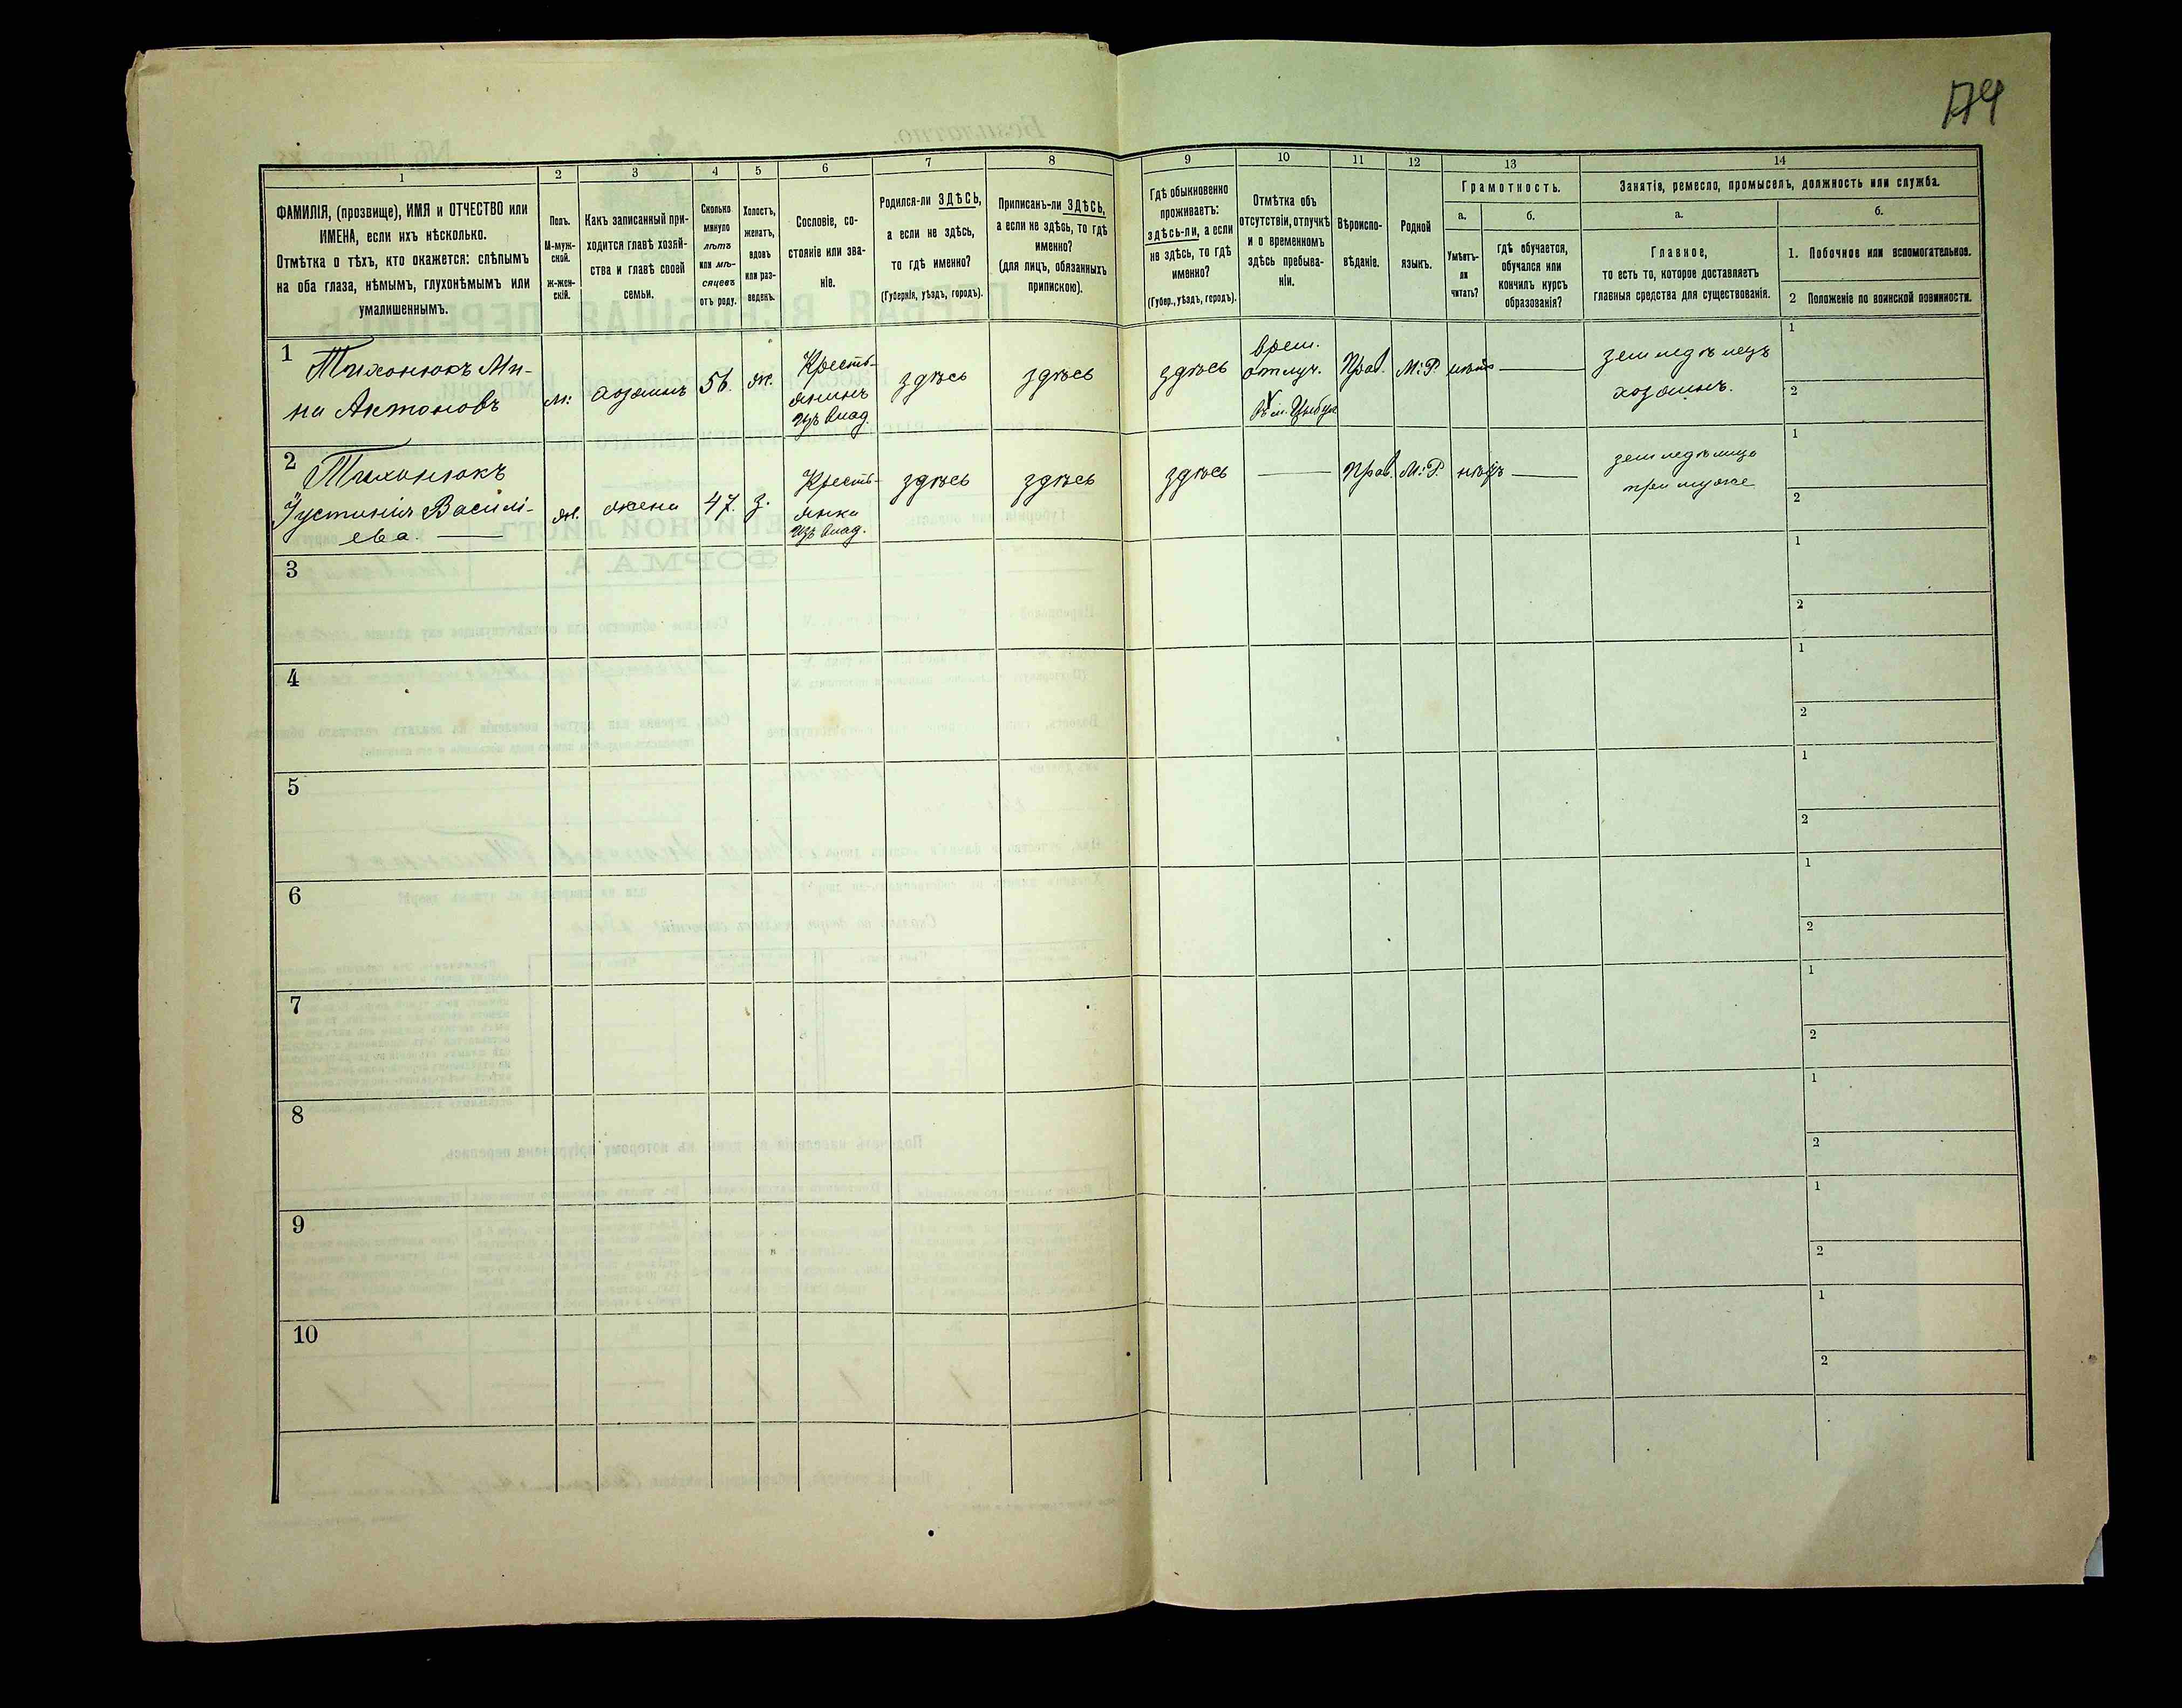 174
1
2
3
4
5
6
7
8
9
10
11
12
13
14
ФАМИЛІЯ, (прозвище), ИМЯ и ОТЧЕСТВО или
ИМЕНА, если ихъ нѣсколько.
Отмѣтка о тѣхъ, кто окажется: слѣпымъ
на оба глаза, нѣмымъ, глухонѣмымъ или
умалишеннымъ.
Полъ.
М-муж-
ской.
Ж-жен-
скій.
Какъ записанный при-
ходится главѣ хозяй-
ства и главѣ своей
семьи.
Сколько
минуло
лѣтъ
или мѣ-
сяцевъ
отъ роду.
Холостъ,
женатъ,
вдовъ
или раз-
веденъ.
Сословіе, со-
стояніе или зва-
ніе.
Родился-ли ЗДѢСЬ,
а если не здѣсь,
то гдѣ именно?
(Губернія, уѣздъ, городъ).
Приписанъ-ли ЗДѢСЬ,
а если не здѣсь, то гдѣ
именно?
(для лицъ, обязанныхъ
припискою).
Гдѣ обыкновенно
проживаетъ:
здѣсь-ли, а если
не здѣсь, то гдѣ
именно?
(Губер., уѣздъ, городъ).
Отмѣтка объ
отсутствіи, отлучкѣ
и о временномъ
здѣсь пребыва-
ніи.
Вѣроиспо-
вѣданіе.
Родной
языкъ.
Грамотность.
а.
Умѣетъ-
ли
читать?
б.
гдѣ обучается,
обучался или
кончилъ курсъ
образованія?
Занятія, ремесло, промыселъ, должность или служба.
а.
Главное,
то есть то, которое доставляетъ
главныя средства для существованія.
б.
1. Побочное или вспомогательное.
2 Положеніе по воинской повинности.
1
Тихонюкъ Ми-
на Антоновъ
м.
хозяинъ
56.
ж.
Кресть-
янинъ
изъ влад.
здѣсь
здѣсь
здѣсь
врем.
отлуч.
Прав.
М.Р.
нѣтъ
земледѣлецъ
хозяинъ.
1
2
2
Тихонюкъ
Густинія Василі-
ева.
ж.
жена
47.
з.
Кресть-
янка
изъ влад.
здѣсь
здѣсь
здѣсь
Прав.
М.Р.
нѣтъ
земледѣлица
при мужѣ
1
2
3
1
2
4
1
2
5
1
2
6
1
2
7
1
2
8
1
2
9
1
2
10
1
2